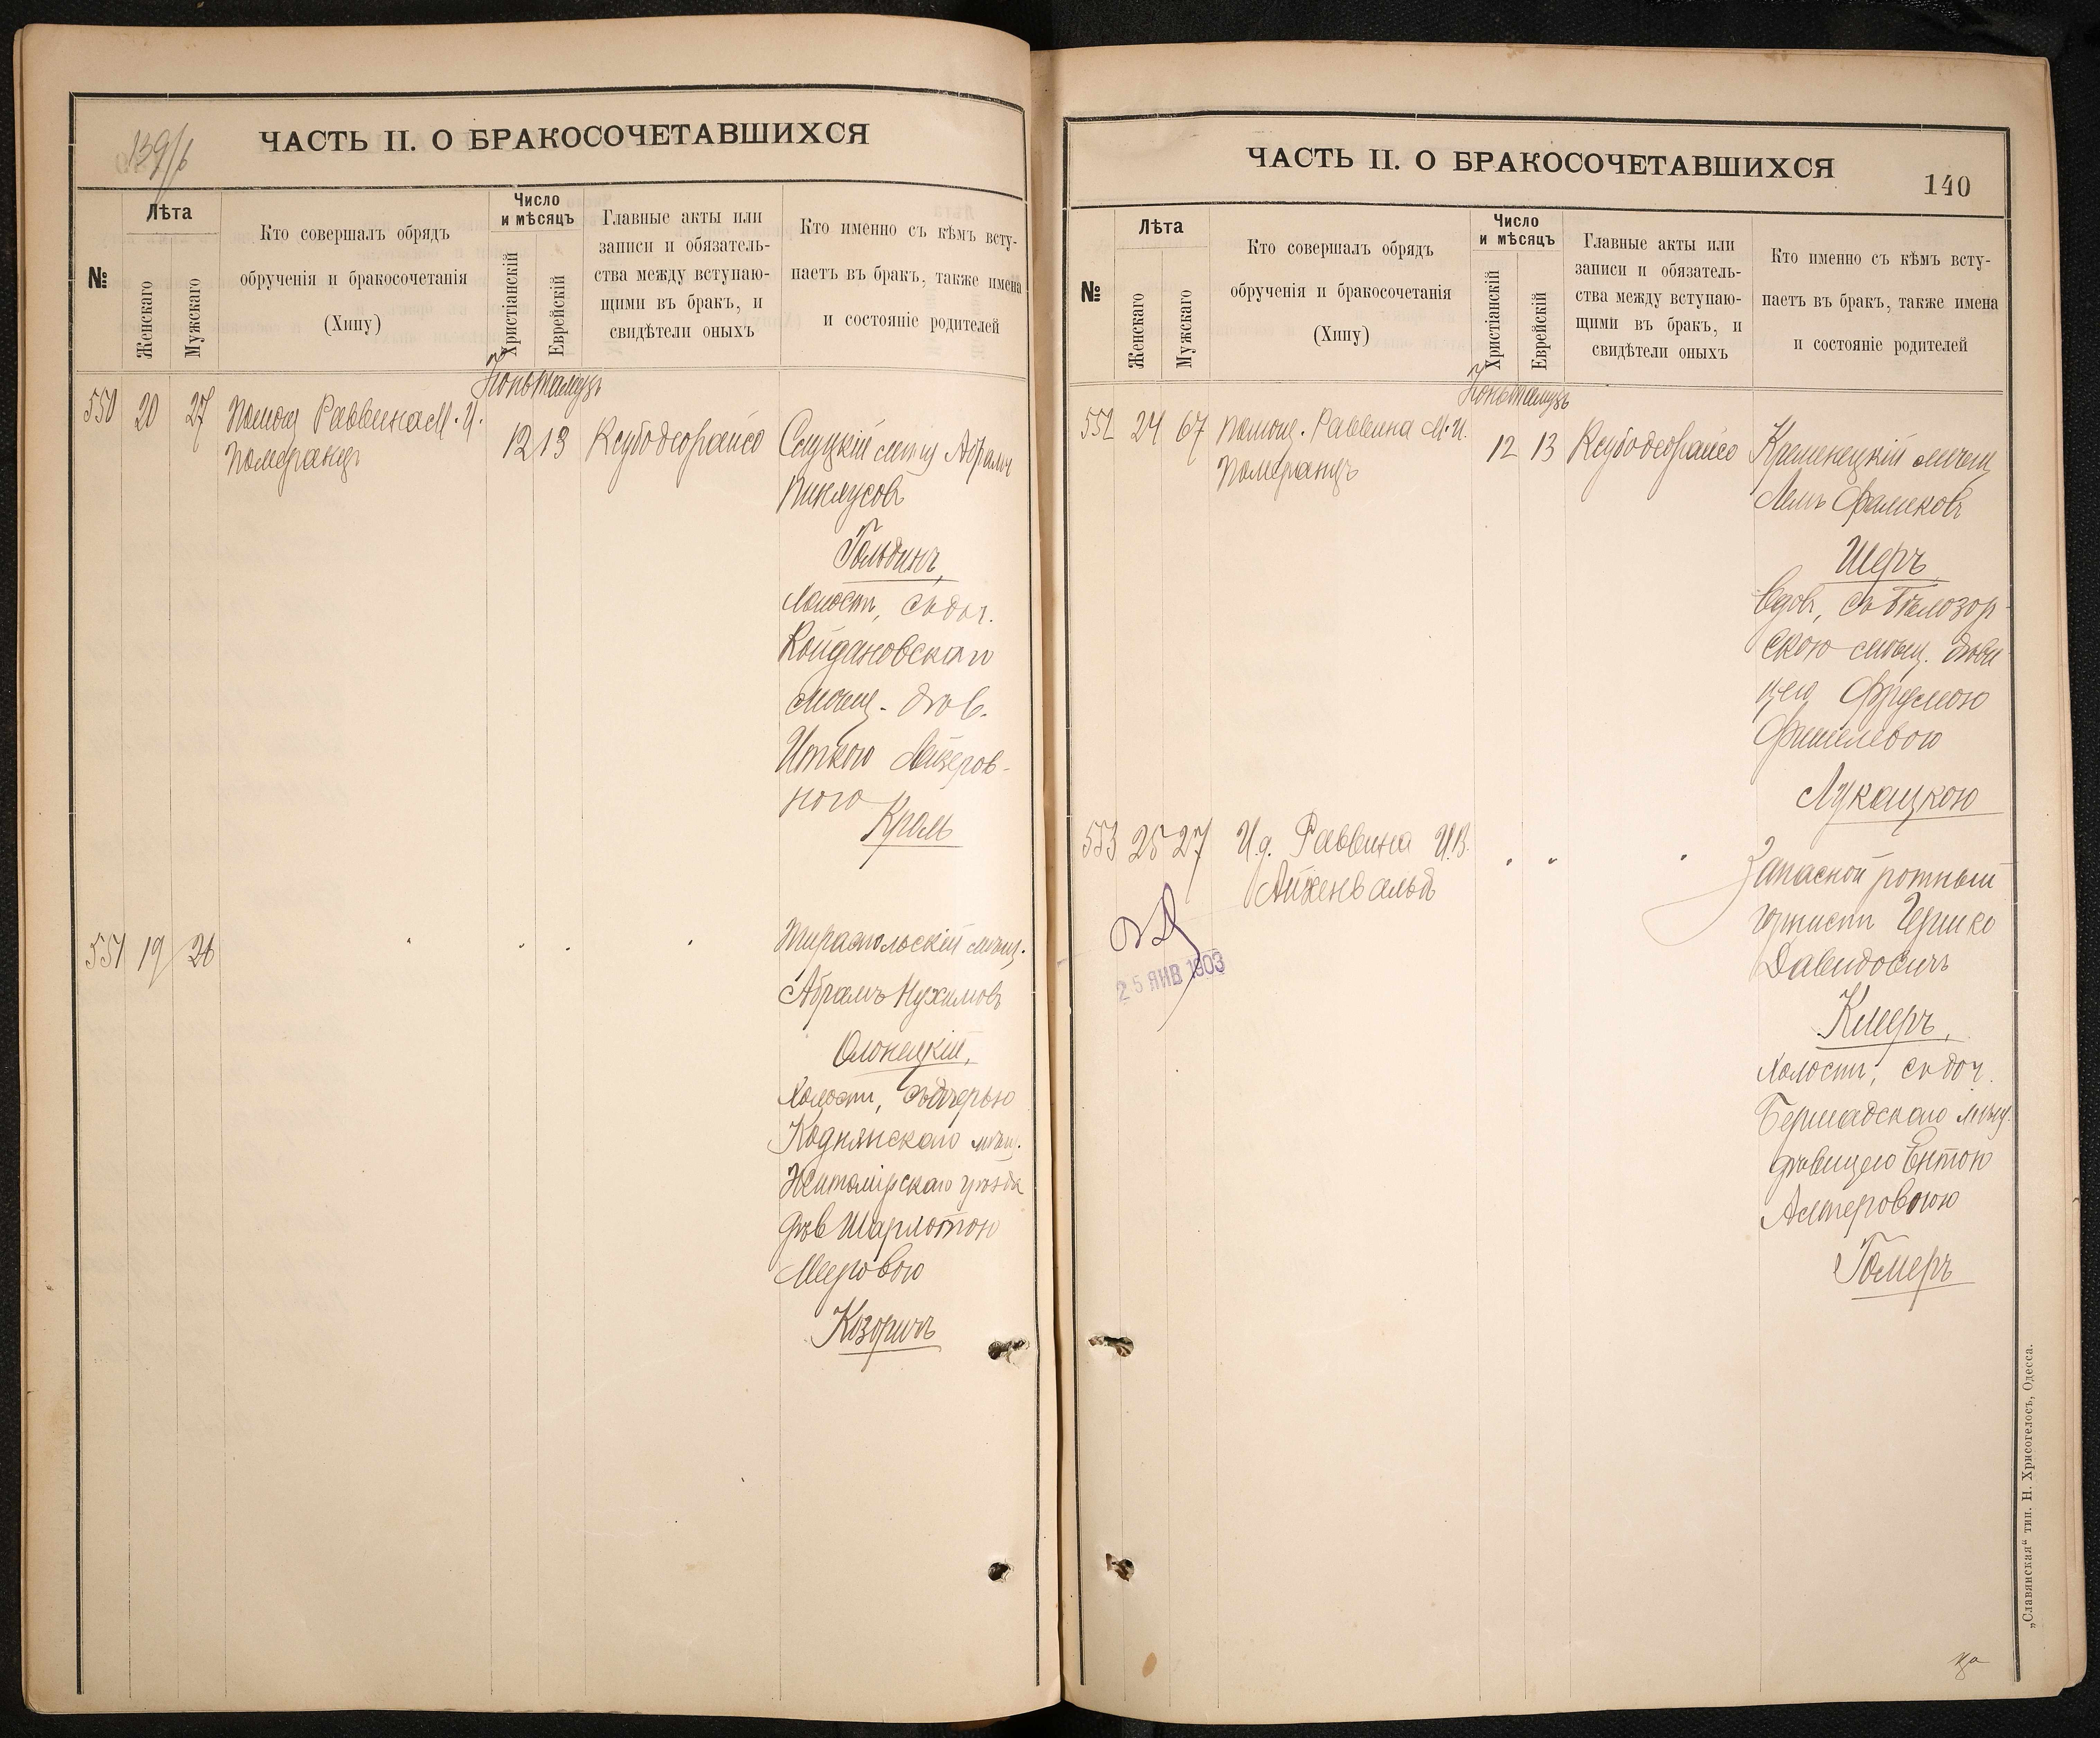 139/б
ЧАСТЬ II. О БРАКОСОЧЕТАВШИХСЯ
№
Лѣта
Женскаго
Мужскаго
Кто совершалъ обрядъ
обрученія и бракосочетанія
(Хипу)
Число
и мѣсяцъ
Христіанскій
Еврейскій
Главные акты или
записи и обязатель-
ства между вступаю-
щими въ бракъ, и
свидѣтели оныхъ
Кто именно съ кѣмъ всту-
паетъ въ бракъ, также имена
и состояніе родителей
Іюнь Тамузъ
550 20 27 Помощ Раввина М. И.
Померанцъ
12 13 Ксубодеорайсо
Слуцкій мѣщ Абрамъ
Пинхусовъ
Гольдинъ,
холост, съ доч.
Койдановскаго
мѣщ. дѣв.
Иткою Лейзеров-
ною
Кроль
551 19 26
Тираспольскій мѣщ.
Абрамъ Нухимовъ
Олонецкій,
холост, съ дочерью
Коднянскаго мѣщ.
Житомірскаго уѣзда
дѣв Шарлотою
Мееровою
Козоричъ
ЧАСТЬ II. О БРАКОСОЧЕТАВШИХСЯ
140
№
Лѣта
Женскаго
Мужскаго
Кто совершалъ обрядъ
обрученія и бракосочетанія
(Хипу)
Число
и мѣсяцъ
Христіанскій
Еврейскій
Главные акты или
записи и обязатель-
ства между вступаю-
щими въ бракъ, и
свидѣтели оныхъ
Кто именно съ кѣмъ всту-
паетъ въ бракъ, также имена
и состояніе родителей
Іюнь Тамузъ
552 24 67 Помощ. Раввина М. И.
Померанцъ
12 13 Ксубодеорайсо
Кременецкій мѣщ
Фаликовъ
Шеръ
вдов, съ Бѣлозор-
скою мѣщ. дѣви
цею Фрумою
Фишелевою
Лукацкою
553 25 27 И.д. Раввина И.В.
Айзенвальдъ
25 ЯНВ 1903
Запасной ротный
горнист Гершко
Давидовичъ
Клееръ,
холост, съ доч.
Бершадскаго мѣщ.
дѣвицею Ентою
Алтеровою
Гомеръ
„Славянская“ тип. Н. Хрисогелосъ, Одесса.